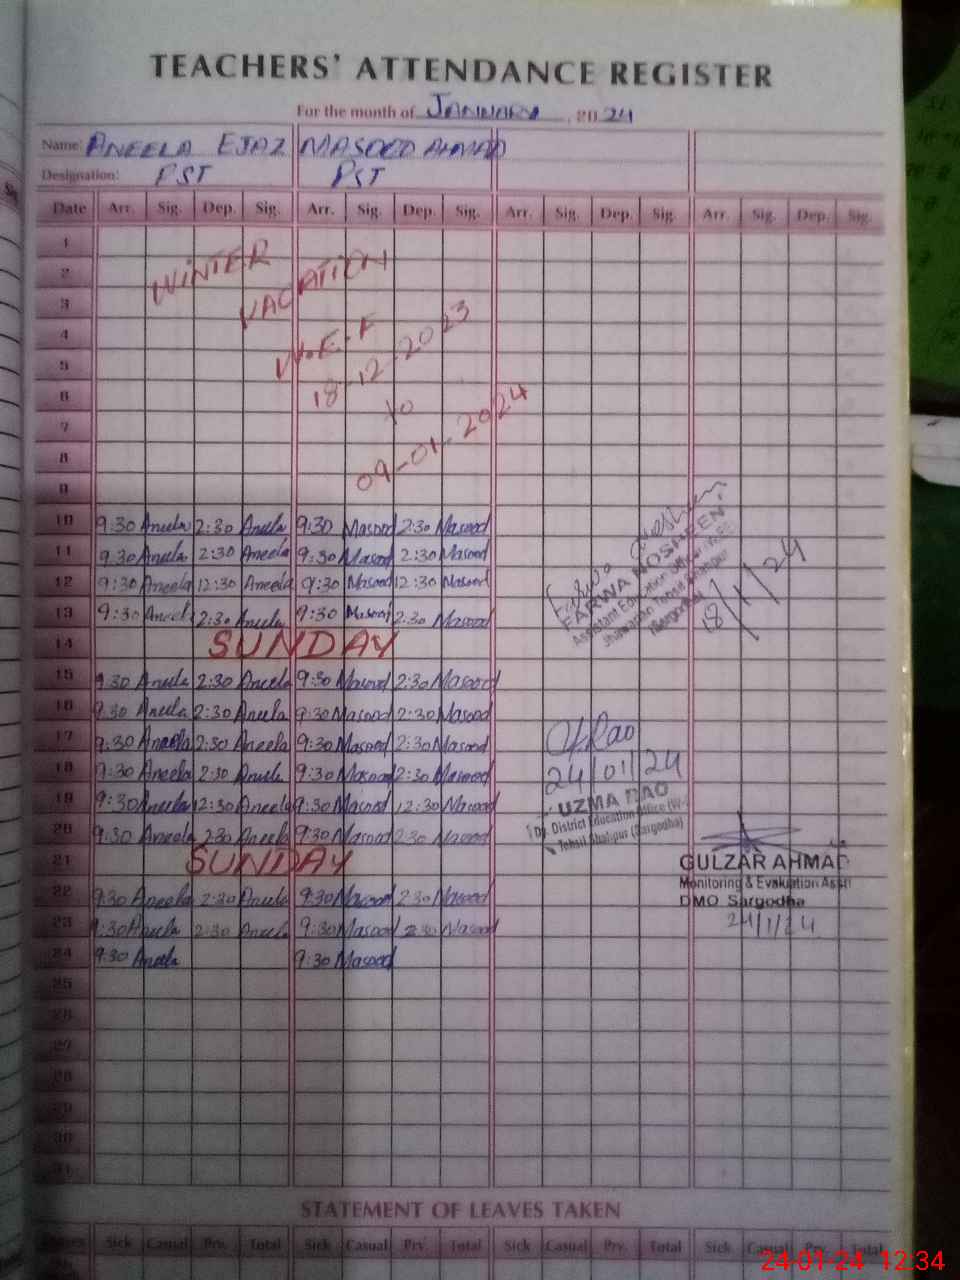 TEACHERS' ATTENDANCE REGISTER
For the month of JANNUARY, 2024
Name: ANEELA EJAZ MASOOD AHMAD
Designation: PST PST
Date Arr. Sig. Dep. Sig. Arr. Sig. Dep. Sig. Arr. Sig. Dep. Sig. Arr. Sig. Dep. Sig.
1
2
3
4
5
6
7
8
9
WINTER
VACATION
W.E.F
18-12-2023
to
09-01-2024
10 9:30 Aneela 2:30 Aneela 9:30 Masood 2:30 Masood
11 9:30 Aneela 2:30 Aneela 9:30 Masood 2:30 Masood
12 9:30 Aneela 12:30 Aneela 9:30 Masood 12:30 Masood
13 9:30 Aneela 2:30 Aneela 9:30 Masood 2:30 Masood
14 SUNDAY
15 9:30 Aneela 2:30 Aneela 9:30 Masood 2:30 Masood
16 9:30 Aneela 2:30 Aneela 9:30 Masood 2:30 Masood
17 9:30 Aneela 2:30 Aneela 9:30 Masood 2:30 Masood
18 9:30 Aneela 2:30 Aneela 9:30 Masood 2:30 Masood
19 9:30 Aneela 12:30 Aneela 9:30 Masood 12:30 Masood
20 9:30 Aneela 2:30 Aneela 9:30 Masood 2:30 Masood
21 SUNDAY
22 9:30 Aneela 2:30 Aneela 9:30 Masood 2:30 Masood
23 9:30 Aneela 2:30 Aneela 9:30 Masood 2:30 Masood
24 9:30 Aneela 9:30 Masood
25
26
27
28
29
30
31
Farwa
FARWA NOSHEEN
Assistant Education Officer
Tehsil Shahpur
(Sargodha)
18/1/24
Rao
24/01/24
UZMA RAO
Dy. District Education Office (W-
Tehsil Shahpur (Sargodha)
GULZAR AHMAD
Monitoring & Evaluation Asstt
DMO Sargodha
24/1/24
STATEMENT OF LEAVES TAKEN
Sick Casual Prv. Total Sick Casual Prv. Total Sick Casual Prv. Total Sick Casual Prv. Total
24-01-24 12:34